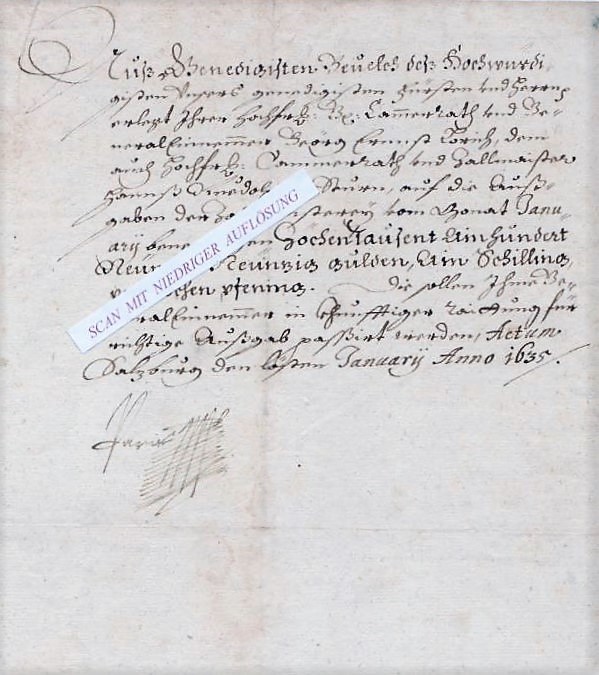 Auß Genedigisten Beuelch deß Hochwürdi-
gisten Vnsers genedigisten Fürsten vnd Herrn
erlegt Ihrer Hochfr: Gn: Cammerrath vnd Ge-
neral Einnemmer Geörg Ernnst dem
auch Hochfr: Cammerrath vnd Zallmaister
Hannß Sturn, auf die Auß-
gaben der vom Monat Janu-
arÿ Söchen Tausent Ain hundert
Neünzig gulden, Ain Schilling,
pfening. die sollen Ihme Ge-
neral Einnemer in khunfftiger Raittung für
richtige Außgab passirt werden, Actum
Salzburg den lösten Januarÿ Anno 1635.
Paris
SCAN MIT NIEDRIGER AUFLÖSUNG